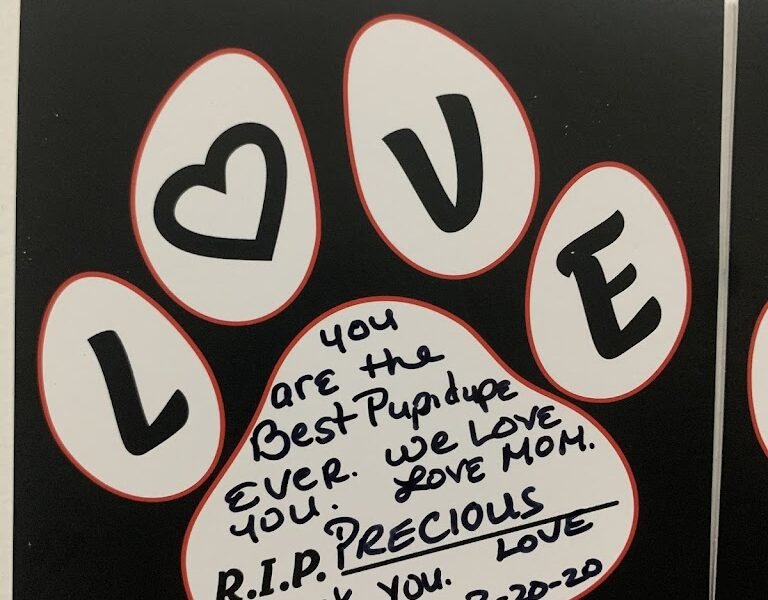 L♡VE
you
are the
Best Pupidupe
EVER. WE LOVE
YOU. LOVE MOM.
R.I.P. PRECIOUS
YOU. LOVE
-20-20